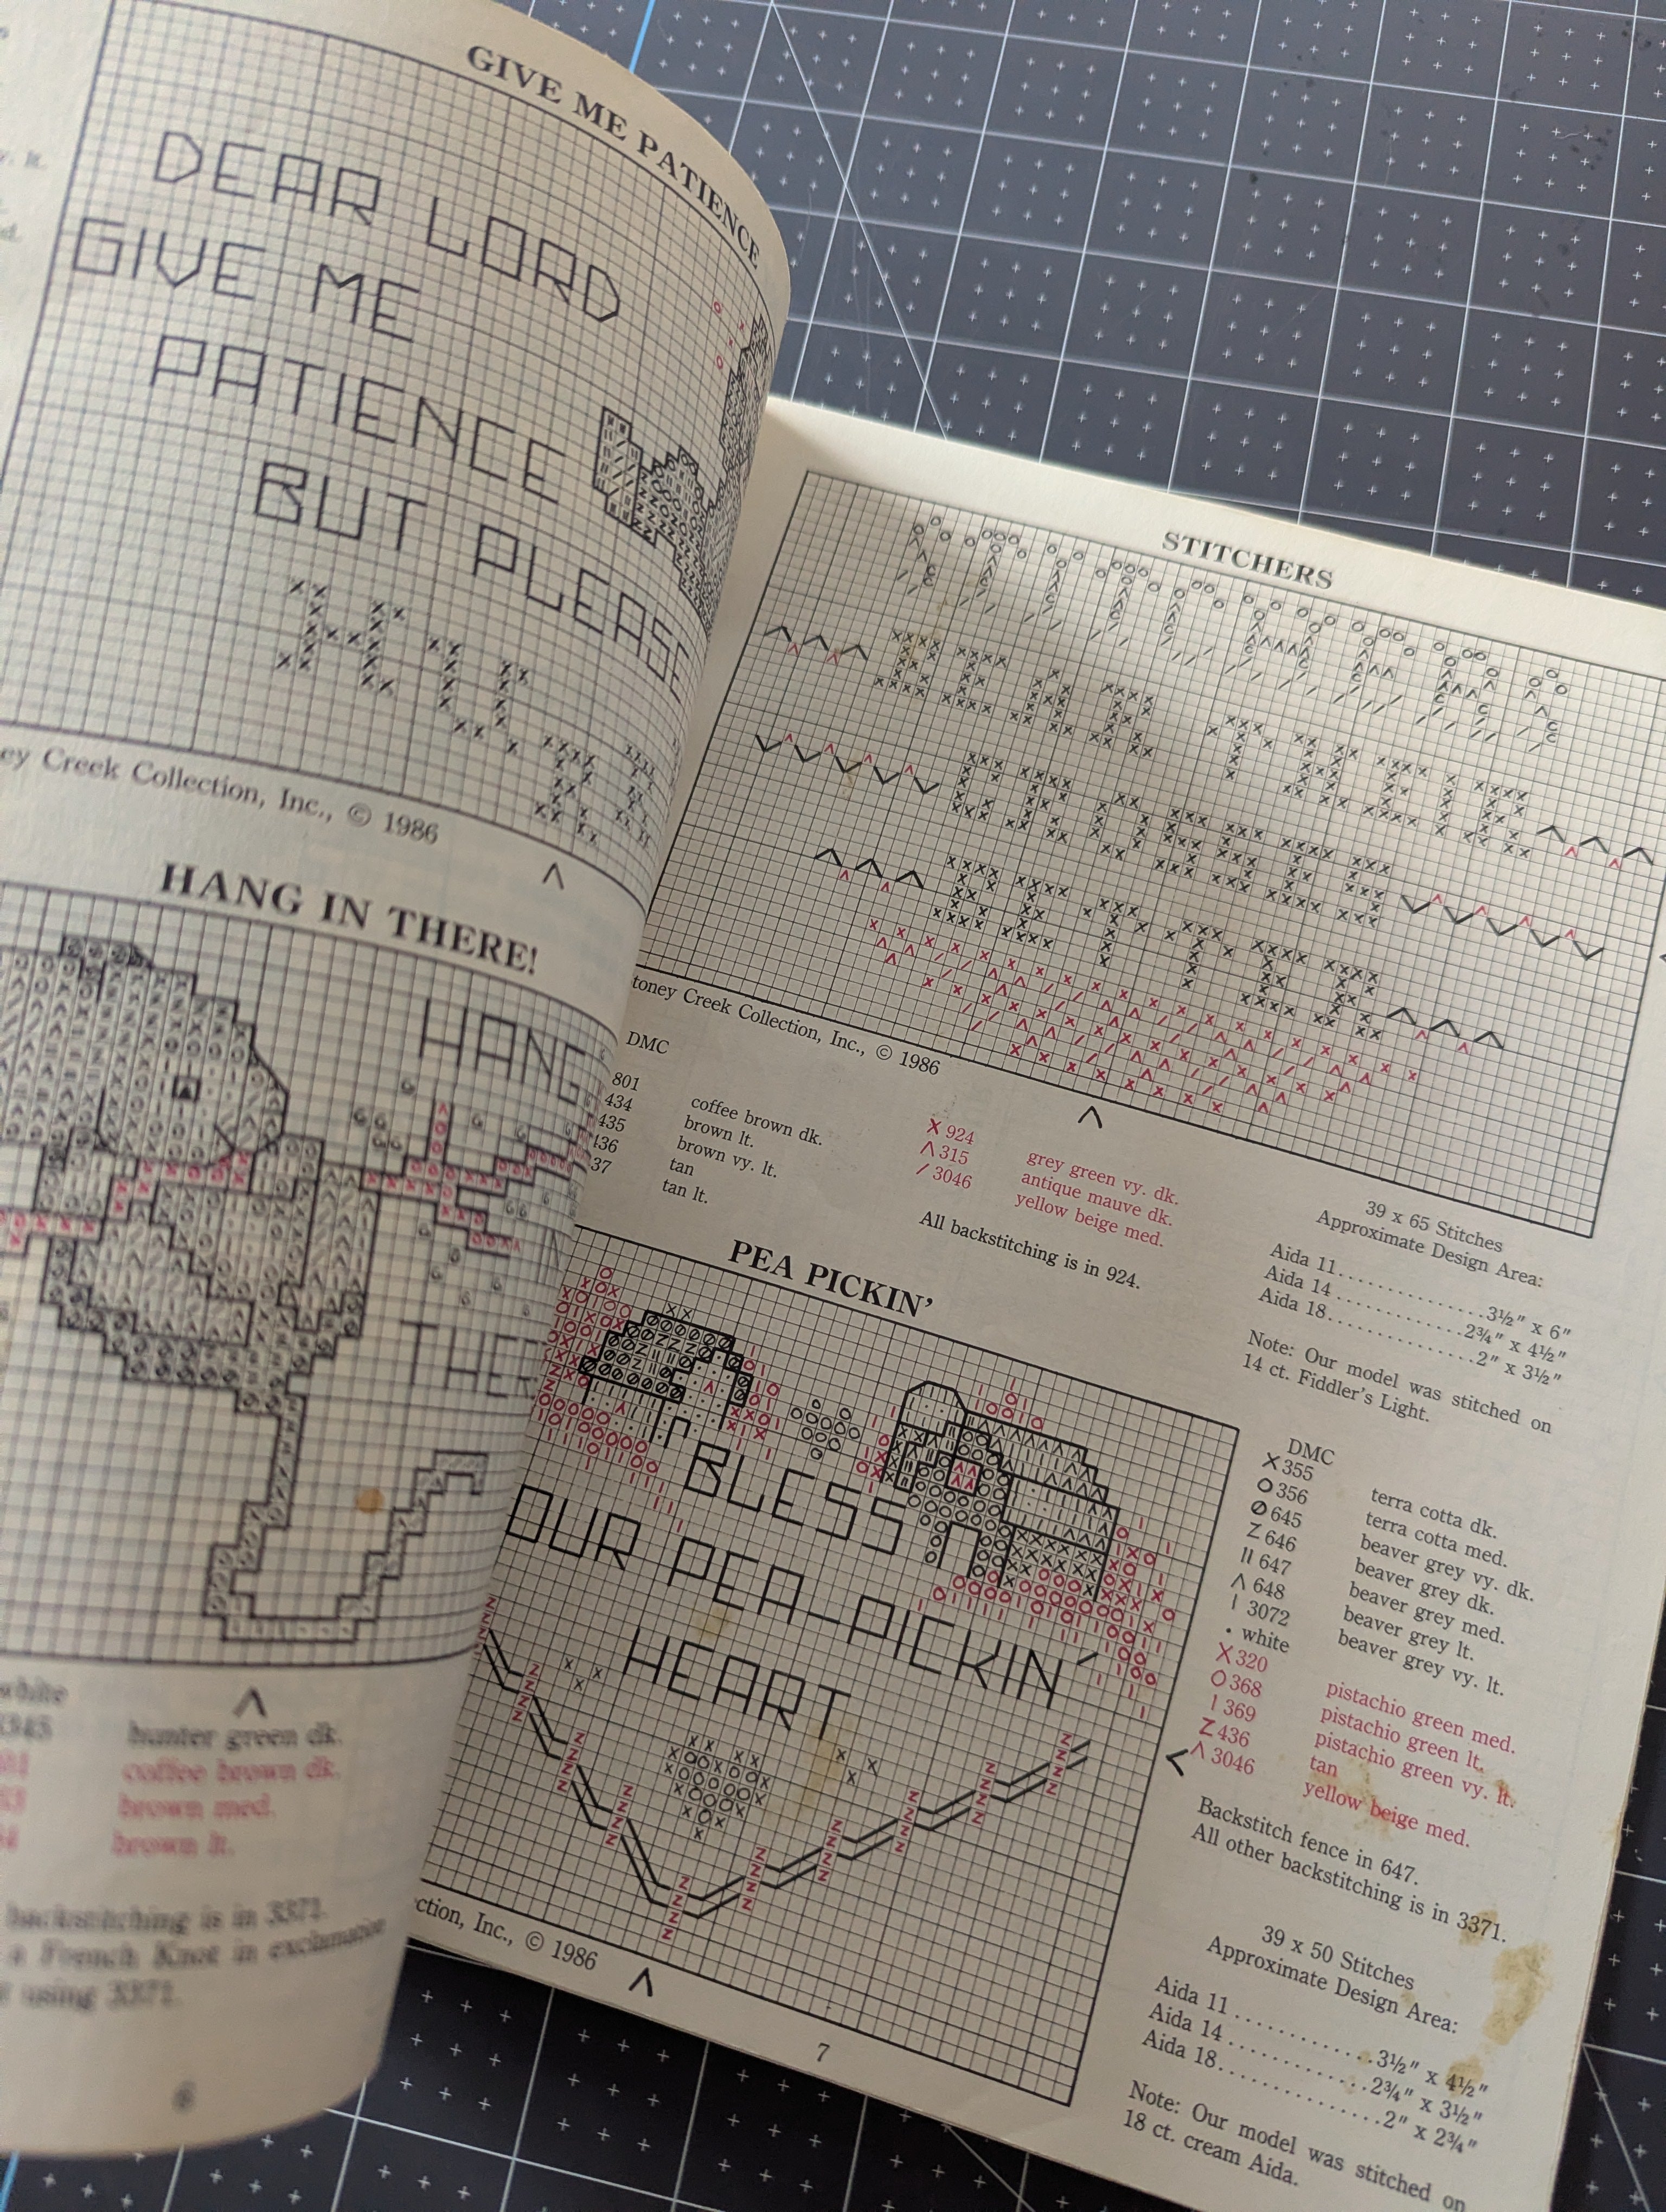 GIVE ME PATIENCE
DEAR LORD
GIVE ME
PATIENCE
BUT PLEASE
HURRY
ey Creek Collection, Inc., © 1986
HANG IN THERE!
HANG
THER
white
3345
hunter green dk.
coffee brown dk.
brown med.
brown lt.
backstitching is in 3371.
a French Knot in exclamation
using 3371.
6
STITCHERS
STITCHERS
BEAR THEIR
CROSSES
BETTER
toney Creek Collection, Inc., © 1986
DMC
801 coffee brown dk.
434 brown lt.
435 brown vy. lt.
436 tan
37 tan lt.
X 924 grey green vy. dk.
Λ 315 antique mauve dk.
/ 3046 yellow beige med.
All backstitching is in 924.
39 x 65 Stitches
Approximate Design Area:
Aida 11 3½" x 6"
Aida 14 2¾" x 4½"
Aida 18 2" x 3½"
Note: Our model was stitched on
14 ct. Fiddler's Light.
PEA PICKIN'
BLESS
OUR PEA-PICKIN'
HEART
ction, Inc., © 1986
DMC
X 355 terra cotta dk.
O 356 terra cotta med.
Ø 645 beaver grey vy. dk.
Z 646 beaver grey dk.
II 647 beaver grey med.
Λ 648 beaver grey lt.
I 3072 beaver grey vy. lt.
• white
X 320 pistachio green med.
O 368 pistachio green lt.
I 369 pistachio green vy. lt.
Z 436 tan
Λ 3046 yellow beige med.
Backstitch fence in 647.
All other backstitching is in 3371.
39 x 50 Stitches
Approximate Design Area:
Aida 11 3½" x 4½"
Aida 14 2¾" x 3½"
Aida 18 2" x 2¾"
Note: Our model was stitched on
18 ct. cream Aida.
7